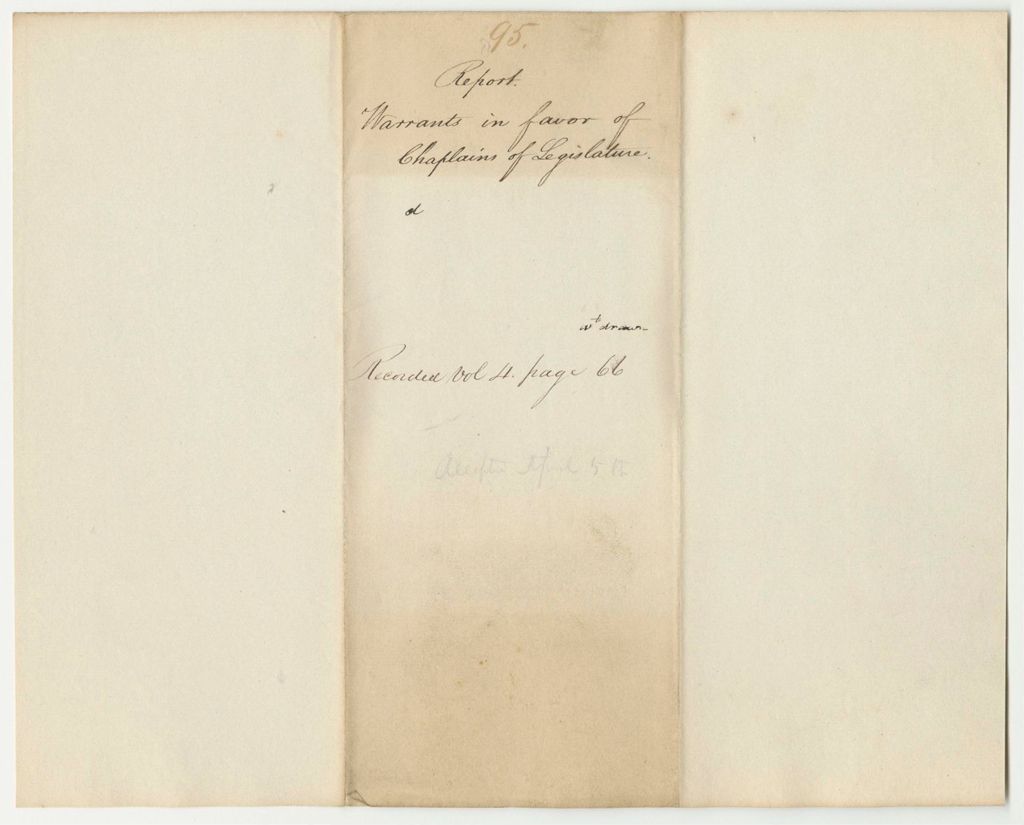 95.
Report.
Warrants in favor of
Chaplains of Legislature.
wt drawn
Recorded Vol 4. page 66
April 5th